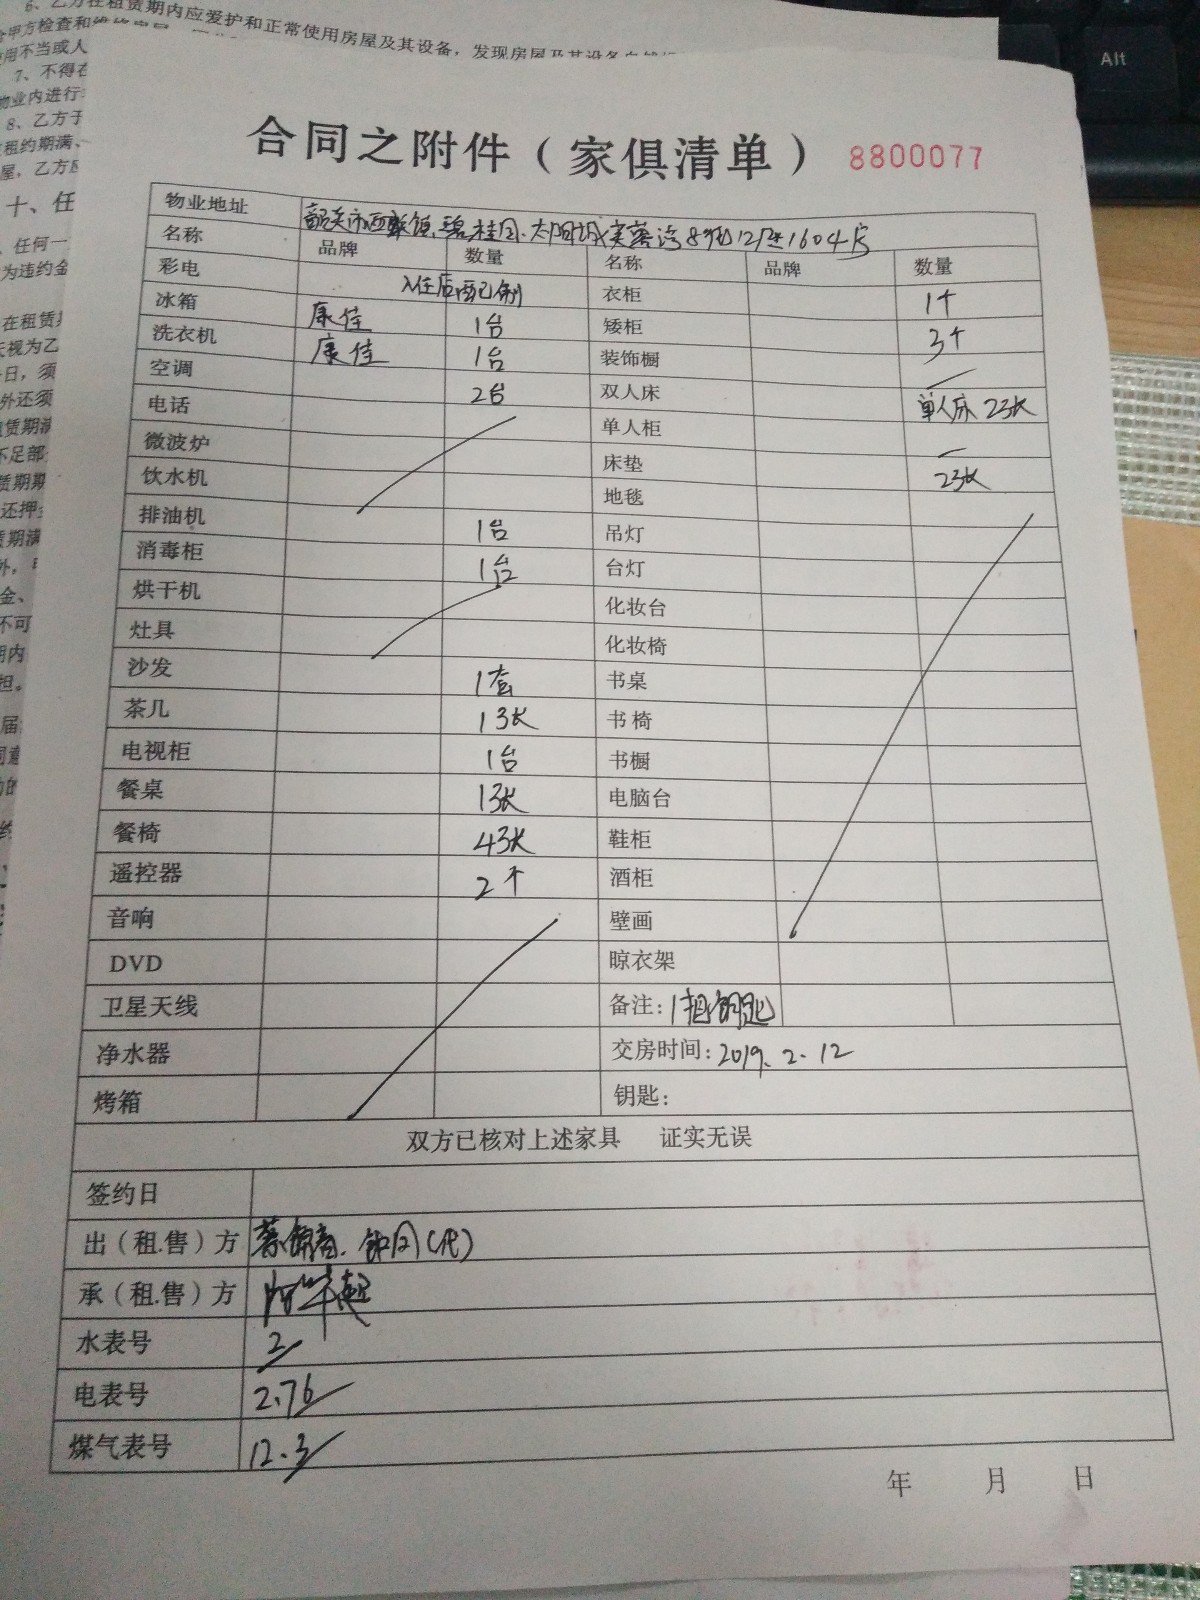 6、乙方在租赁期内应爱护和正常使用房屋及其设备，发现房屋及其设备
甲方检查和
用不当或人
7、不得在
物业内进行
8、乙方于
租约期满、
屋，乙方应
十、任
任何一
为违约金
在租赁
视为乙
日，须
外还须
租赁期满
不足部
赁期
还押
赁期满
外，
金、
不可
期内
担。
届
合同之附件（家俱清单） 8800077
物业地址 韶关市西联镇碧桂园·太阳城芙蓉湾8街12座1604房
名称 品牌 数量 名称 品牌 数量
彩电 衣柜 1个
冰箱 康佳 1台 矮柜 3个
洗衣机 康佳 1台 装饰橱
空调 2台 双人床 单人床 2张
电话 单人柜
微波炉 床垫 2张
饮水机 地毯
排油机 1台 吊灯
消毒柜 1台 台灯
烘干机 化妆台
灶具 化妆椅
沙发 1套 书桌
茶几 1张 书椅
电视柜 1台 书橱
餐桌 1张 电脑台
餐椅 4张 鞋柜
遥控器 2个 酒柜
音响 壁画
DVD 晾衣架
卫星天线 备注：1把钥匙
净水器 交房时间：2019.2.12
烤箱 钥匙：
双方已核对上述家具 证实无误
签约日
出（租.售）方 (代)
承（租.售）方
水表号 2
电表号 2.76
煤气表号 12.3
年 月 日
Alt